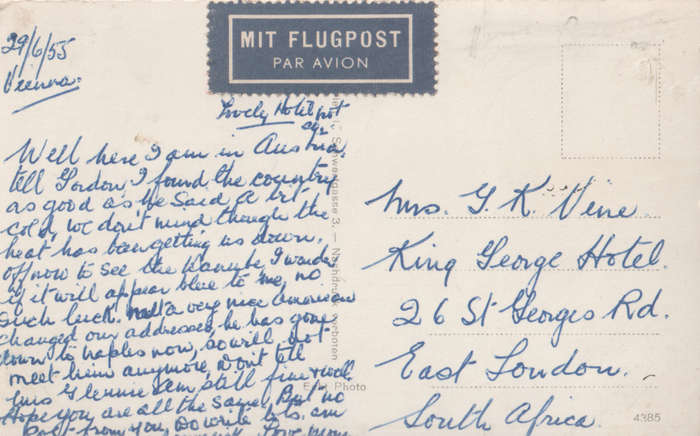 29/6/55
Vienna.
MIT FLUGPOST
PAR AVION
Lovely Hotel
Well here I am in Austria.
tell Gordon, I found the country
as good as he said. A bit
cold, we don't mind though the
heat has been getting us down.
Off now to see the Danube. I wonder
if it will appear blue to me, no
such luck. a very nice American
changed our addresses, he has gone
down to Naples now, so will not
meet him anymore, Don't tell
Mrs Glennie. Am still fine & well
Hope you are all the same, But no
from you, Do write
Love
Mrs. G. K. Vine
King George Hotel.
26 St Georges Rd.
East London.
South Africa.
Nachdruck verboten
Photo
4385